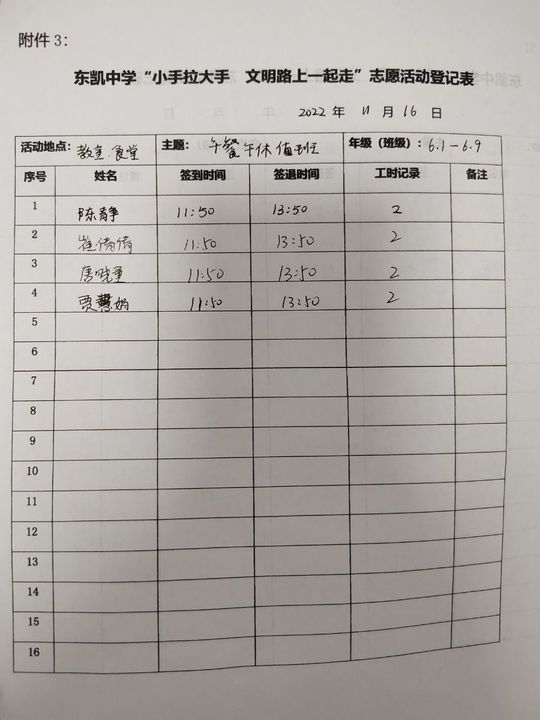 附件 3：
东凯中学“小手拉大手　文明路上一起走”志愿活动登记表
2022 年 11 月 16 日
活动地点： 教室.食堂 主题： 午餐午休值班 年级（班级）：6.1－6.9
序号 姓名 签到时间 签退时间 工时记录 备注
1 陈静 11:50 13:50 2
2 崔倩倩 11:50 13:50 2
3 唐晓 11:50 13:50 2
4 贾慧娟 11:50 13:50 2
5
6
7
8
9
10
11
12
13
14
15
16